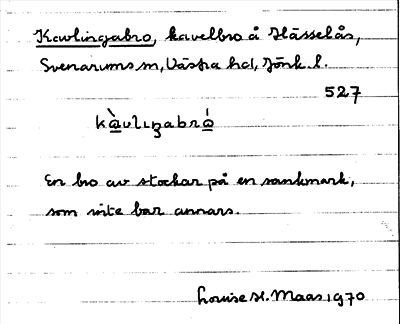 Kavlingabro, kavelbro å Hässelås,
Svenarums sn, Västra hd, Jönk. l.
527
kàvlıŋabró
En bro av stockar på en sankmark,
som inte bar annars.
Louise H. Maas 1970